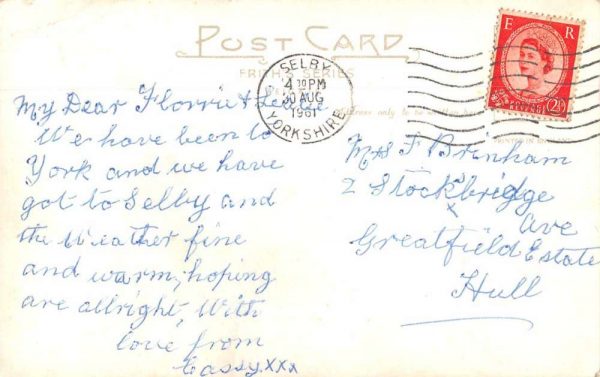 POST CARD
FRITH'S SERIES
SELBY
4 30 PM
30 AUG
1961
YORKSHIRE
E R
POSTAGE
REVENUE
2½D
My Dear Florrie &
We have been to
York and we have
got to Selby and
the Weather fine
and warm, hoping
are allright, With
love from
Cassy xxx
Address only to be written
PRINTED IN
Mrs F Brinham
2 Stockbridge
x
Ave
Greatfield Estate
Hull